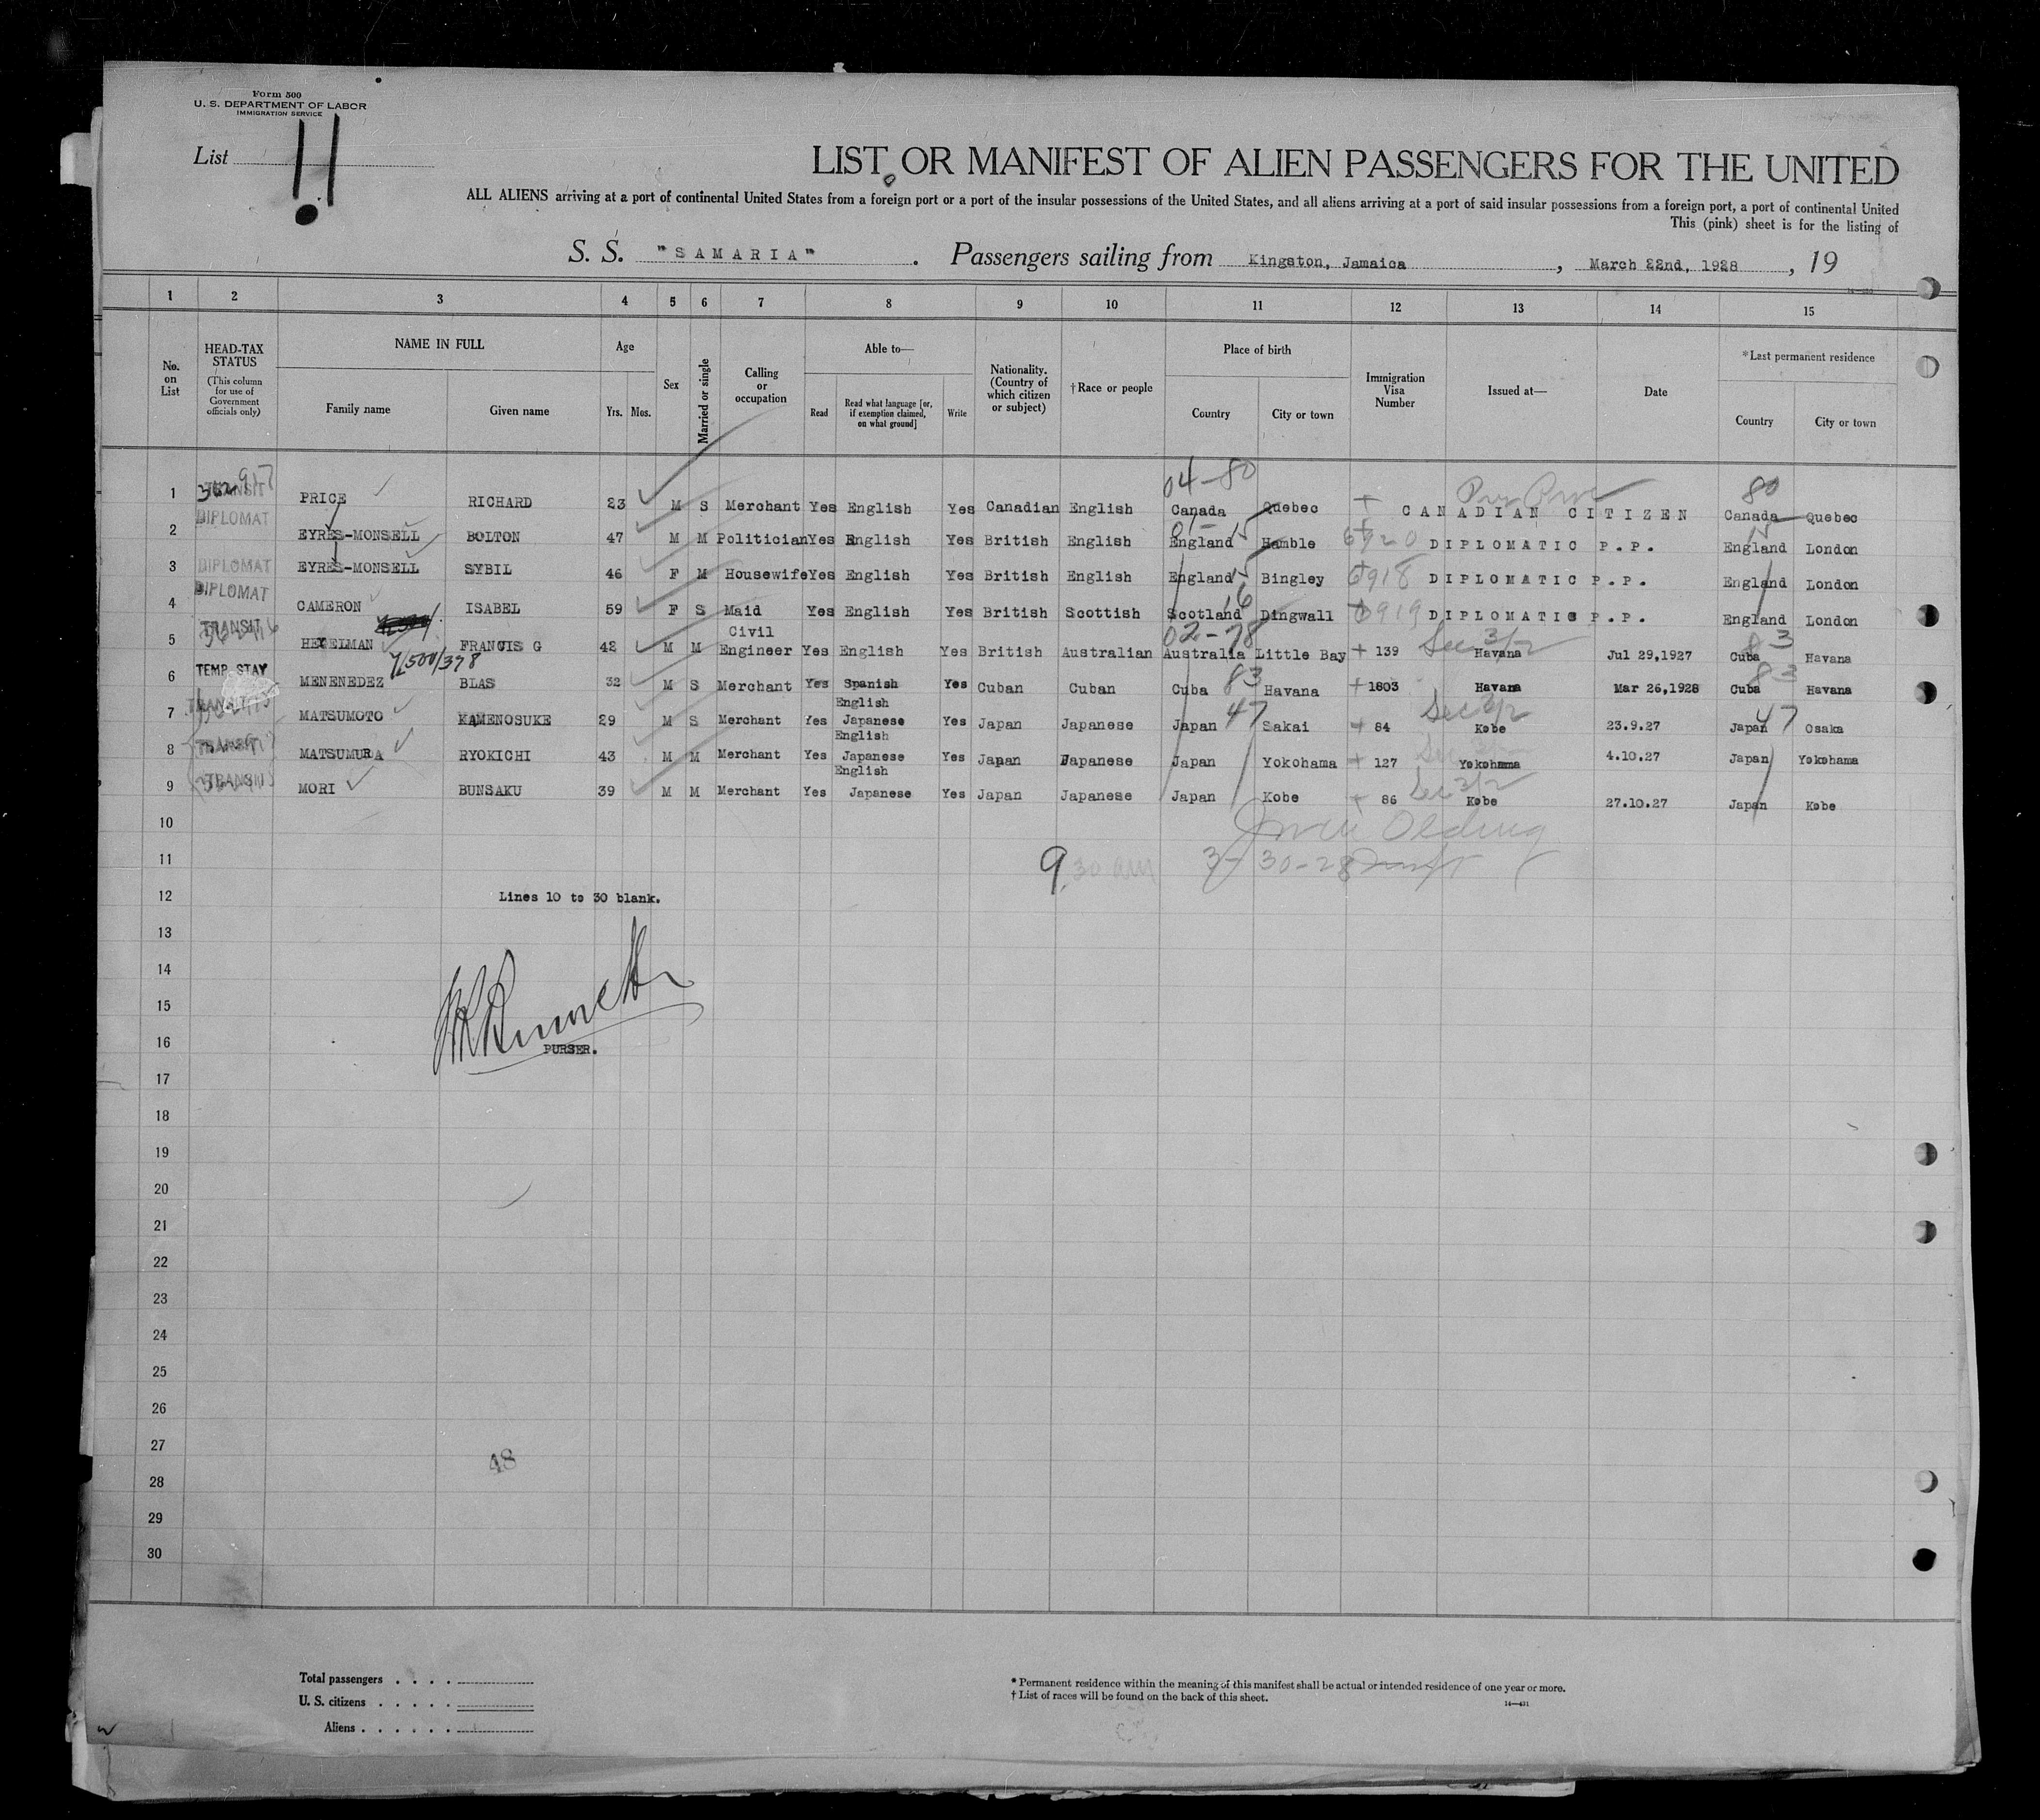 Form 500
U. S. DEPARTMENT OF LABOR
IMMIGRATION SERVICE
List 11
LIST OR MANIFEST OF ALIEN PASSENGERS FOR THE UNITED
ALL ALIENS arriving at a port of continental United States from a foreign port or a port of the insular possessions of the United States, and all aliens arriving at a port of said insular possessions from a foreign port, a port of continental United
This (pink) sheet is for the listing of
S. S. "SAMARIA". Passengers sailing from Kingston, Jamaica, March 22nd, 1928, 19
1 2 3 4 5 6 7 8 9 10 11 12 13 14 15
No. on List
HEAD-TAX STATUS (This column for use of Government officials only)
NAME IN FULL
Family name Given name
Age
Yrs. Mos.
Sex
Married or single
Calling or occupation
Able to—
Read
Read what language [or, if exemption claimed, on what ground]
Write
Nationality. (Country of which citizen or subject)
†Race or people
Place of birth
Country City or town
Immigration Visa Number
Issued at—
Date
*Last permanent residence
Country City or town
04-80 80
1 TRANSIT PRICE RICHARD 23 M S Merchant Yes English Yes Canadian English Canada Quebec CANADIAN CITIZEN Canada Quebec
2 DIPLOMAT EYRES-MONSELL BOLTON 47 M M Politician Yes English Yes British English England Hamble 6920 DIPLOMATIC P.P. England London
3 DIPLOMAT EYRES-MONSELL SYBIL 46 F M Housewife Yes English Yes British English England Bingley 6918 DIPLOMATIC P.P. England London
4 DIPLOMAT CAMERON ISABEL 59 F S Maid Yes English Yes British Scottish Scotland Dingwall 6919 DIPLOMATIC P.P. England London
02-78
5 TRANSIT FRANCIS G 42 M M Civil Engineer Yes English Yes British Australian Australia Little Bay 139 Havana Jul 29,1927 Cuba Havana
7/500/378
6 TEMP STAY MENENEDEZ BLAS 32 M S Merchant Yes Spanish Yes Cuban Cuban Cuba 83 Havana 1803 Havana Mar 26,1928 Cuba 83 Havana
7 TRANSIT MATSUMOTO KAMENOSUKE 29 M S Merchant Yes English Japanese Yes Japan Japanese Japan 47 Sakai 84 Kobe 23.9.27 Japan 47 Osaka
8 TRANSIT MATSUMURA RYOKICHI 43 M M Merchant Yes English Japanese Yes Japan Japanese Japan Yokohama 127 Yokohama 4.10.27 Japan Yokohama
9 TRANSIT MORI BUNSAKU 39 M M Merchant Yes English Japanese Yes Japan Japanese Japan Kobe 86 Kobe 27.10.27 Japan Kobe
10
11 9.30 am 3-30-28
12 Lines 10 to 30 blank.
13
14
15
16 PURSER.
17
18
19
20
21
22
23
24
25
26
27
48
28
29
30
Total passengers . . . .
U. S. citizens . . . . .
Aliens . . . . . .
* Permanent residence within the meaning of this manifest shall be actual or intended residence of one year or more.
† List of races will be found on the back of this sheet.
14—431